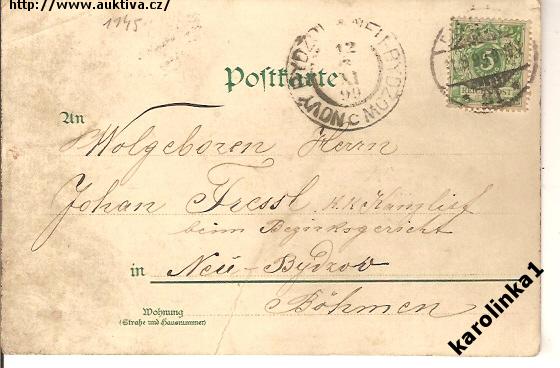 http://www.auktiva.cz/
1145
Postkarte
NOVÝ BYDŽOV * NEU-BYDZOW
12
XI
99
5
An
Wolgeboren Herrn
Johan Fressl k.k. Kanzlist
beim Bezirksgericht
in Neu-Bydzov
Böhmen
Wohnung
(Straße und Hausnummer)
karolinka1